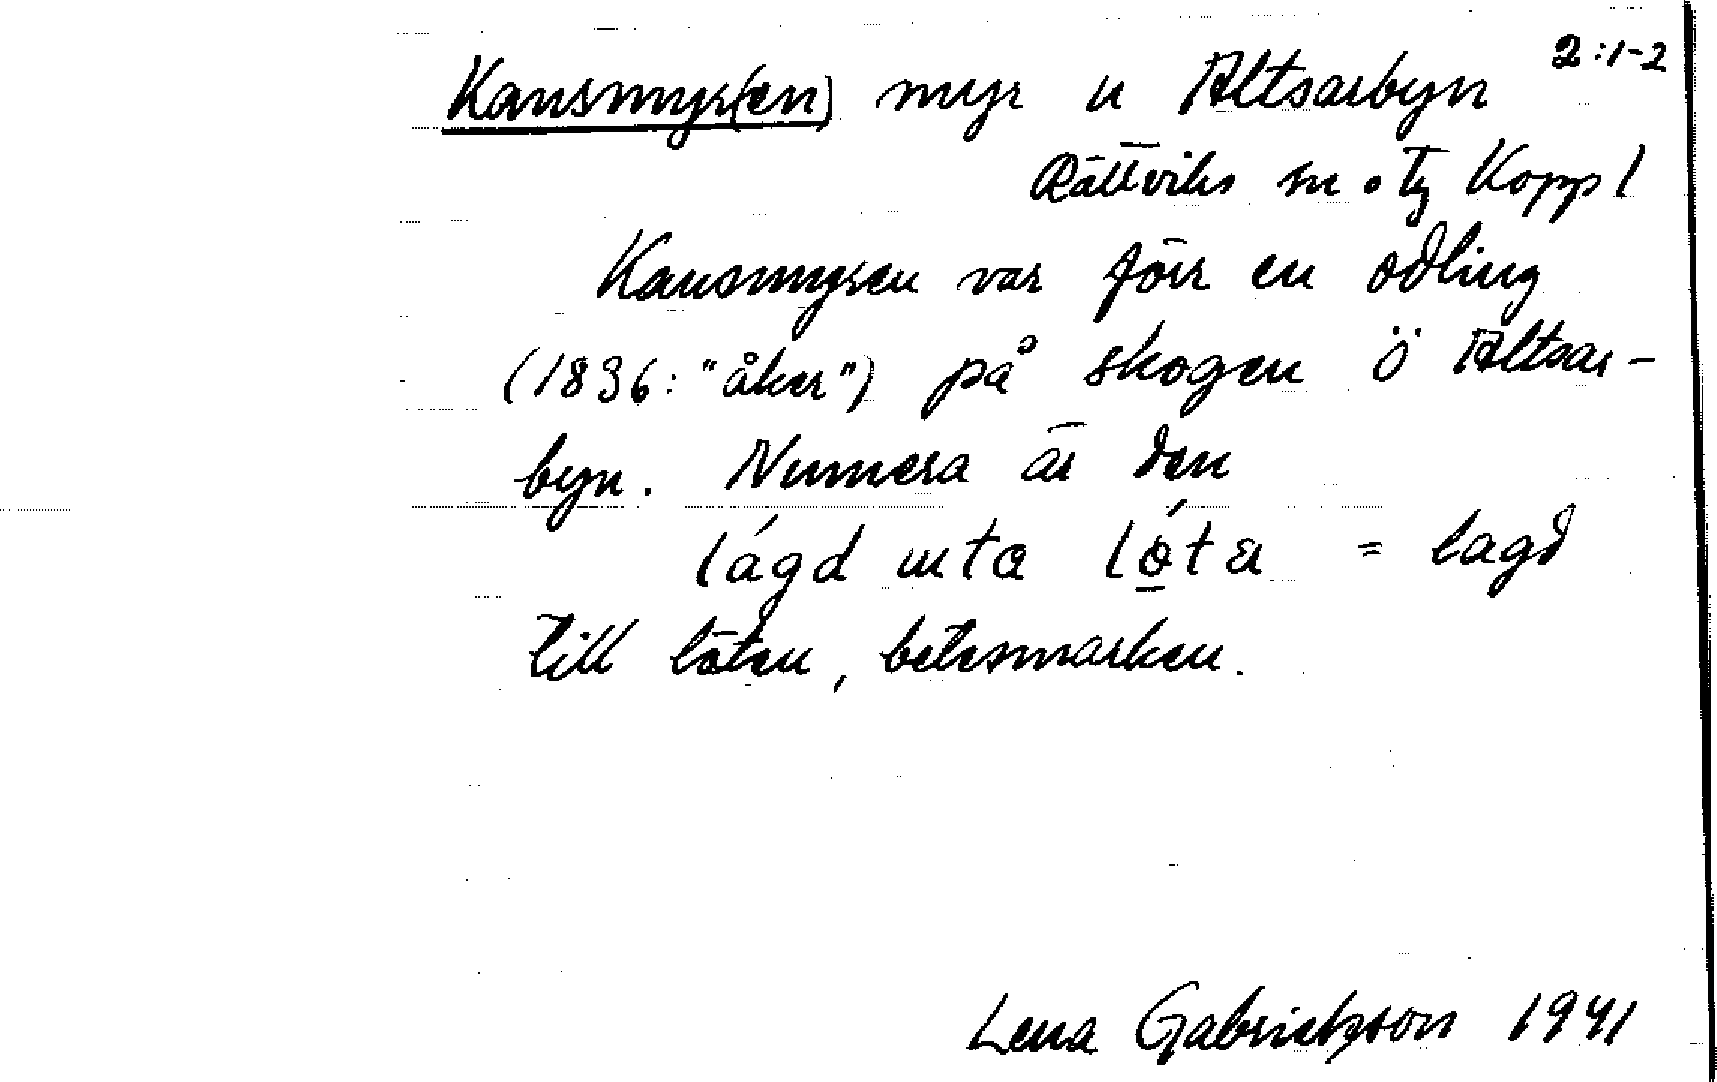 2:1-2
Kansmyr(en) myr u Altsarbyn
Rättviks sn o tg Kopp l
Kansmyren var förr en odling
(1896: "åker") på skogen ö Altsar-
byn. Numera är den
lágd uta = lagd
till löten, betesmarken.
Lena Gabrielsson 1941